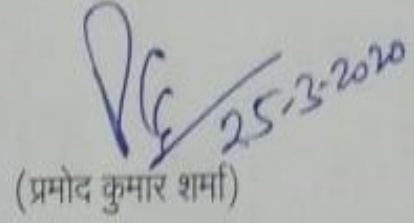 25-3-2020
(प्रमोद कुमार शर्मा)